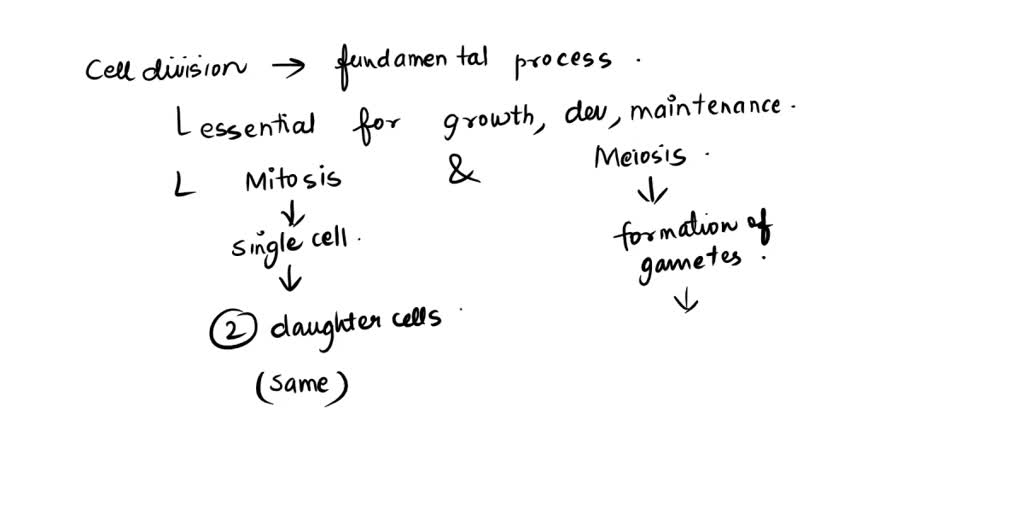 Cell division → fundamental process.
essential for growth, dev, maintenance.
Mitosis & Meiosis.
↓ ↓
single cell. formation of
gametes.
↓ ↓
② daughter cells.
(same)